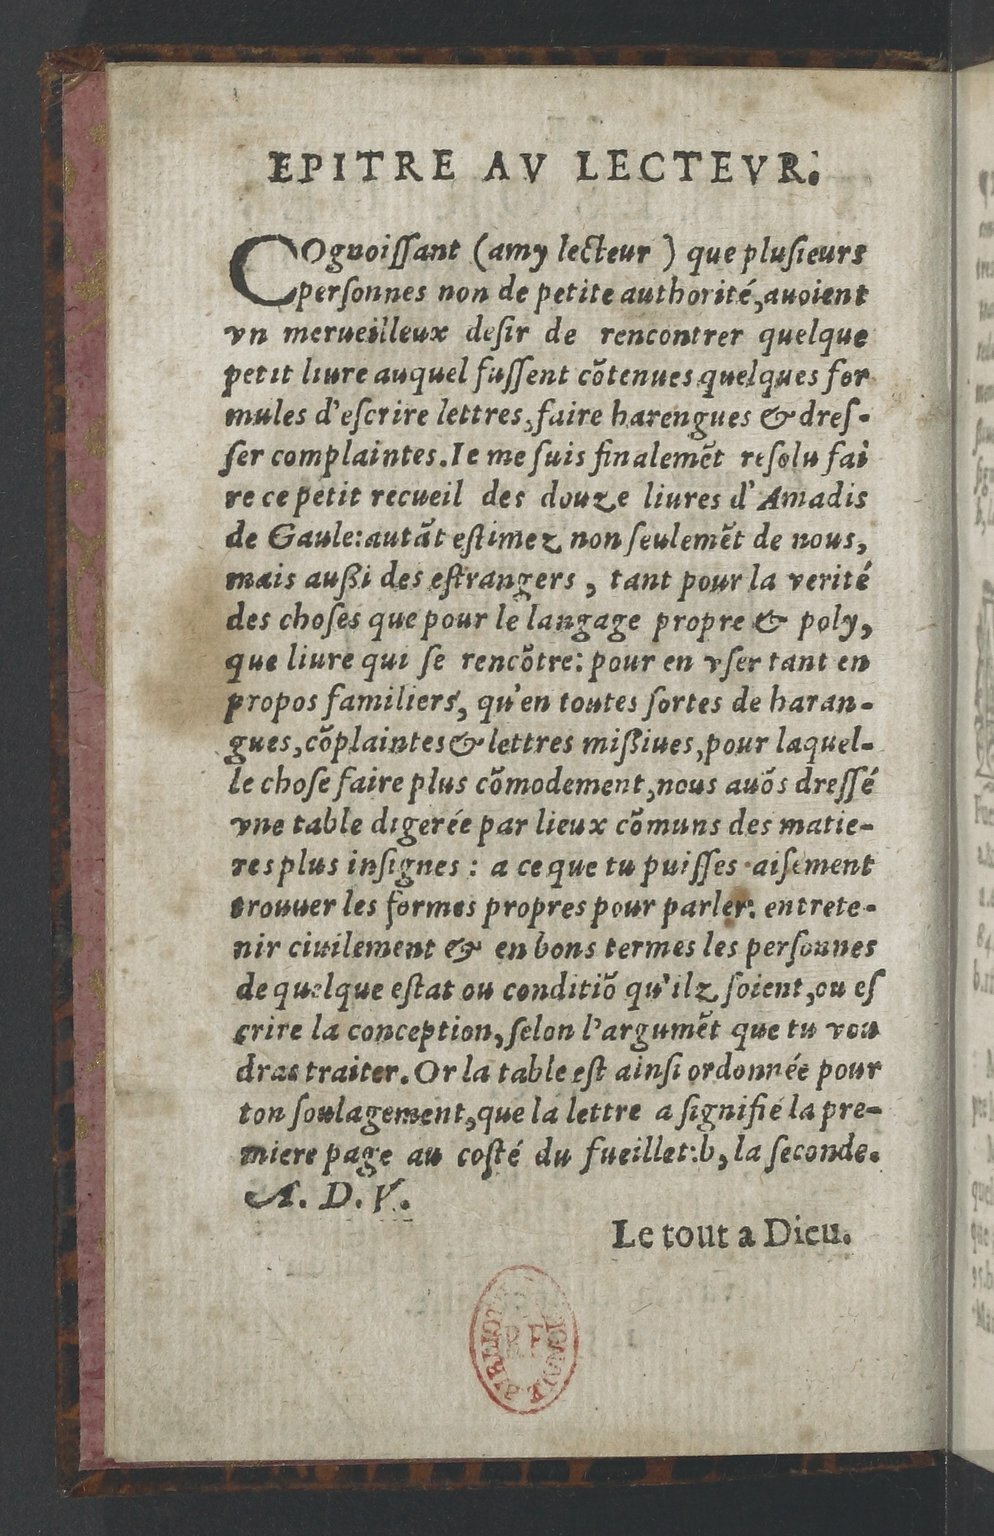 EPITRE AV LECTEVR.
COgnoiſſant (amy lecteur ) que pluſieurs
perſonnes non de petite authorité, auoient
vn merueilleux deſir de rencontrer quelque
petit liure auquel fuſſent cõtenues quelques for
mules d'eſcrire lettres, faire harengues & dreſ-
ſer complaintes. Ie me ſuis finalemẽt reſolu fai
re ce petit recueil des douze liures d'Amadis
de Gaule: autãt eſtimez non ſeulemẽt de nous,
mais außi des eſtrangers , tant pour la verité
des choſes que pour le langage propre & poly,
que liure qui ſe rencõtre: pour en vſer tant en
propos familiers, qu'en toutes ſortes de haran-
gues, cõplaintes & lettres mißiues, pour laquel-
le choſe faire plus cõmodement, nous auõs dreſſé
vne table digerée par lieux cõmuns des matie-
res plus inſignes : a ce que tu puiſſes aiſement
trouuer les formes propres pour parler: entrete-
nir ciuilement & en bons termes les perſonnes
de quelque eſtat ou conditiõ qu'ilz ſoient, ou eſ
crire la conception, ſelon l'argumẽt que tu vou
dras traiter. Or la table eſt ainſi ordonnée pour
ton ſoulagement, que la lettre a ſignifie la pre-
miere page au coſté du fueillet: b, la ſeconde.
A. D. V.
Le tout a Dieu.
R F